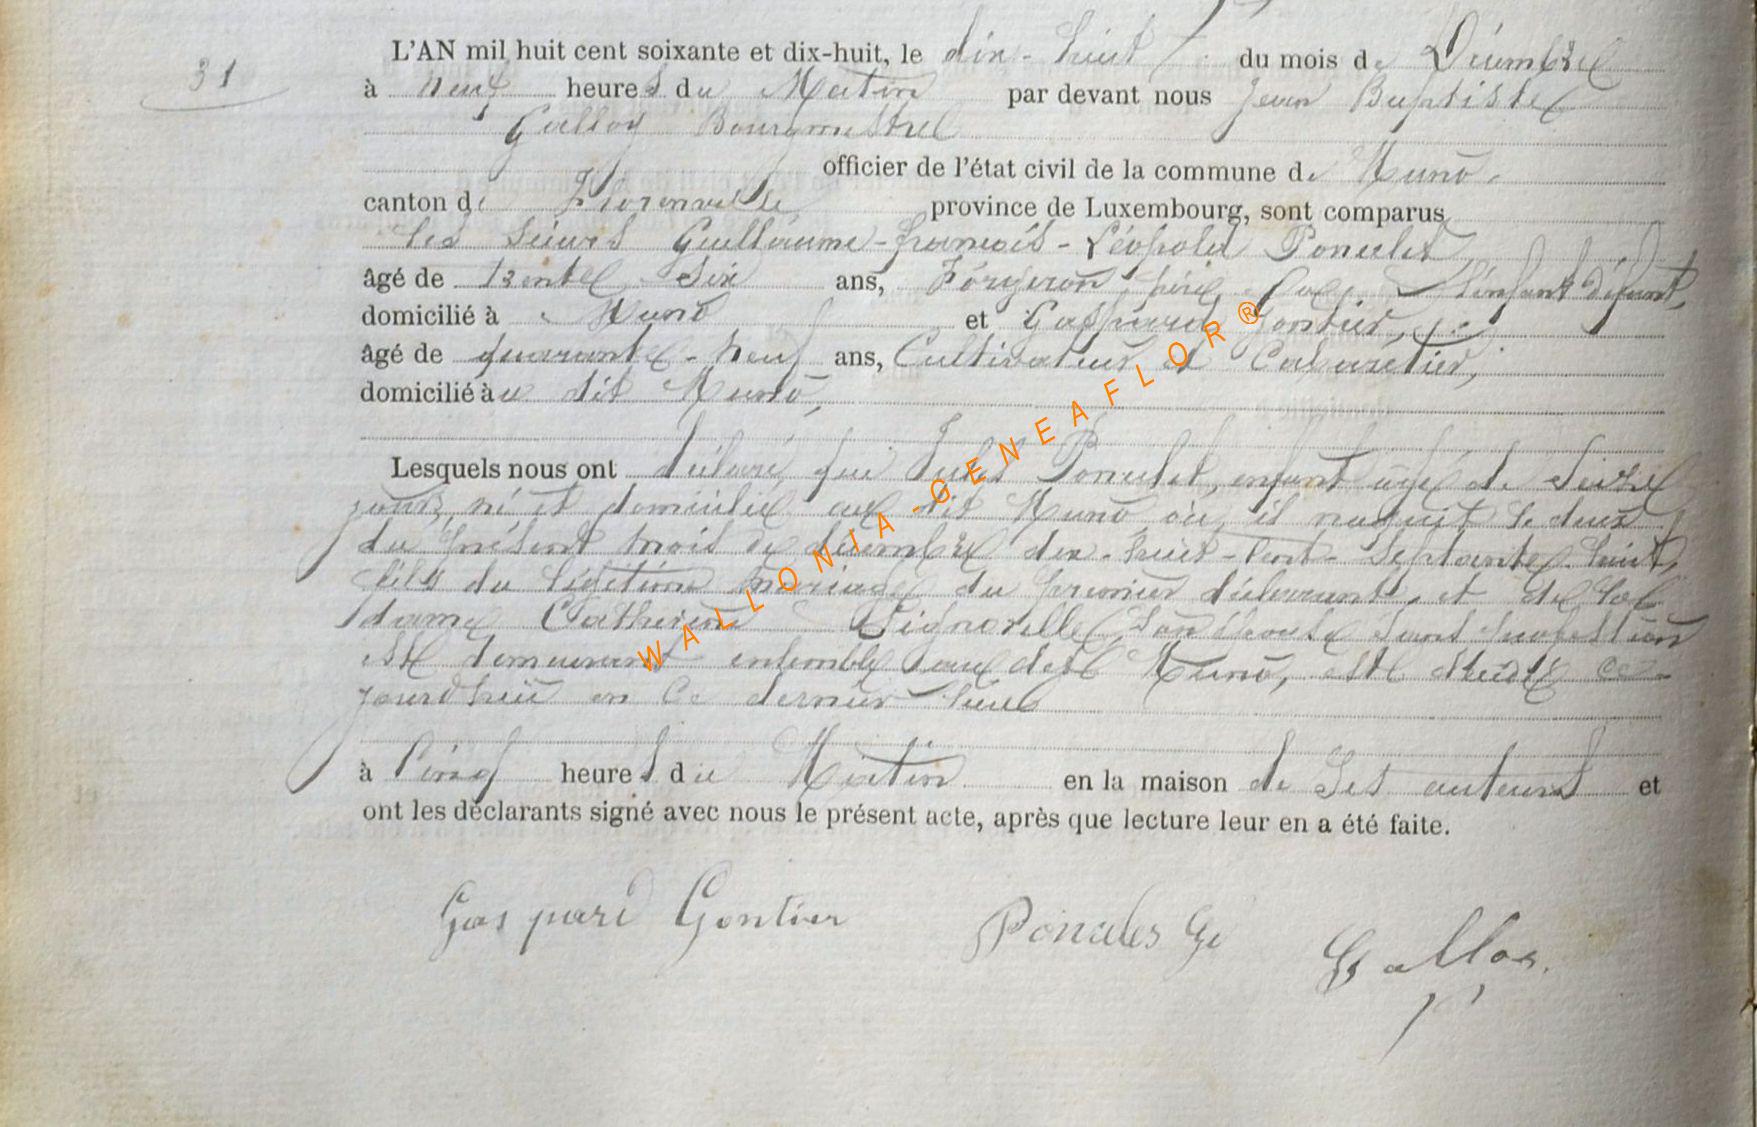 31
L'AN mil huit cent soixante et dix-huit, le dix-huit du mois de Décembre
à neuf heures du Matin par devant nous Jean Baptiste
Galloy Bourgmestre
officier de l'état civil de la commune de Muno.
canton de Florenville province de Luxembourg, sont comparus
les sieurs Guillaume-françois-Léopold Poncelet,
âgé de trente six ans, Forgeron, père de l'enfant défunt,
domicilié à Muno et Gaspard Gontier,
âgé de quarante-neuf ans, Cultivateur et Cabaretier,
domicilié au dit Muno,
Lesquels nous ont déclaré que Jules Poncelet, enfant agé de seize
jours, né et domicilié au dit Muno où il naquit le deux
du présent mois de décembre dix-huit-cent-septante-huit,
fils du légitime mariage du premier déclarant et de la
dame Catherine Signorelle son épouse sans profession
demeurant ensemble au dit Muno, est décédé ce
jourd'hui en ce dernier lieu
à Cinq heures du Matin en la maison de ses auteurs et
ont les déclarants signé avec nous le présent acte, après que lecture leur en a été faite.
Gaspard Gontier Poncelet G Galloy
WALLONIA-GENEAFLOR®